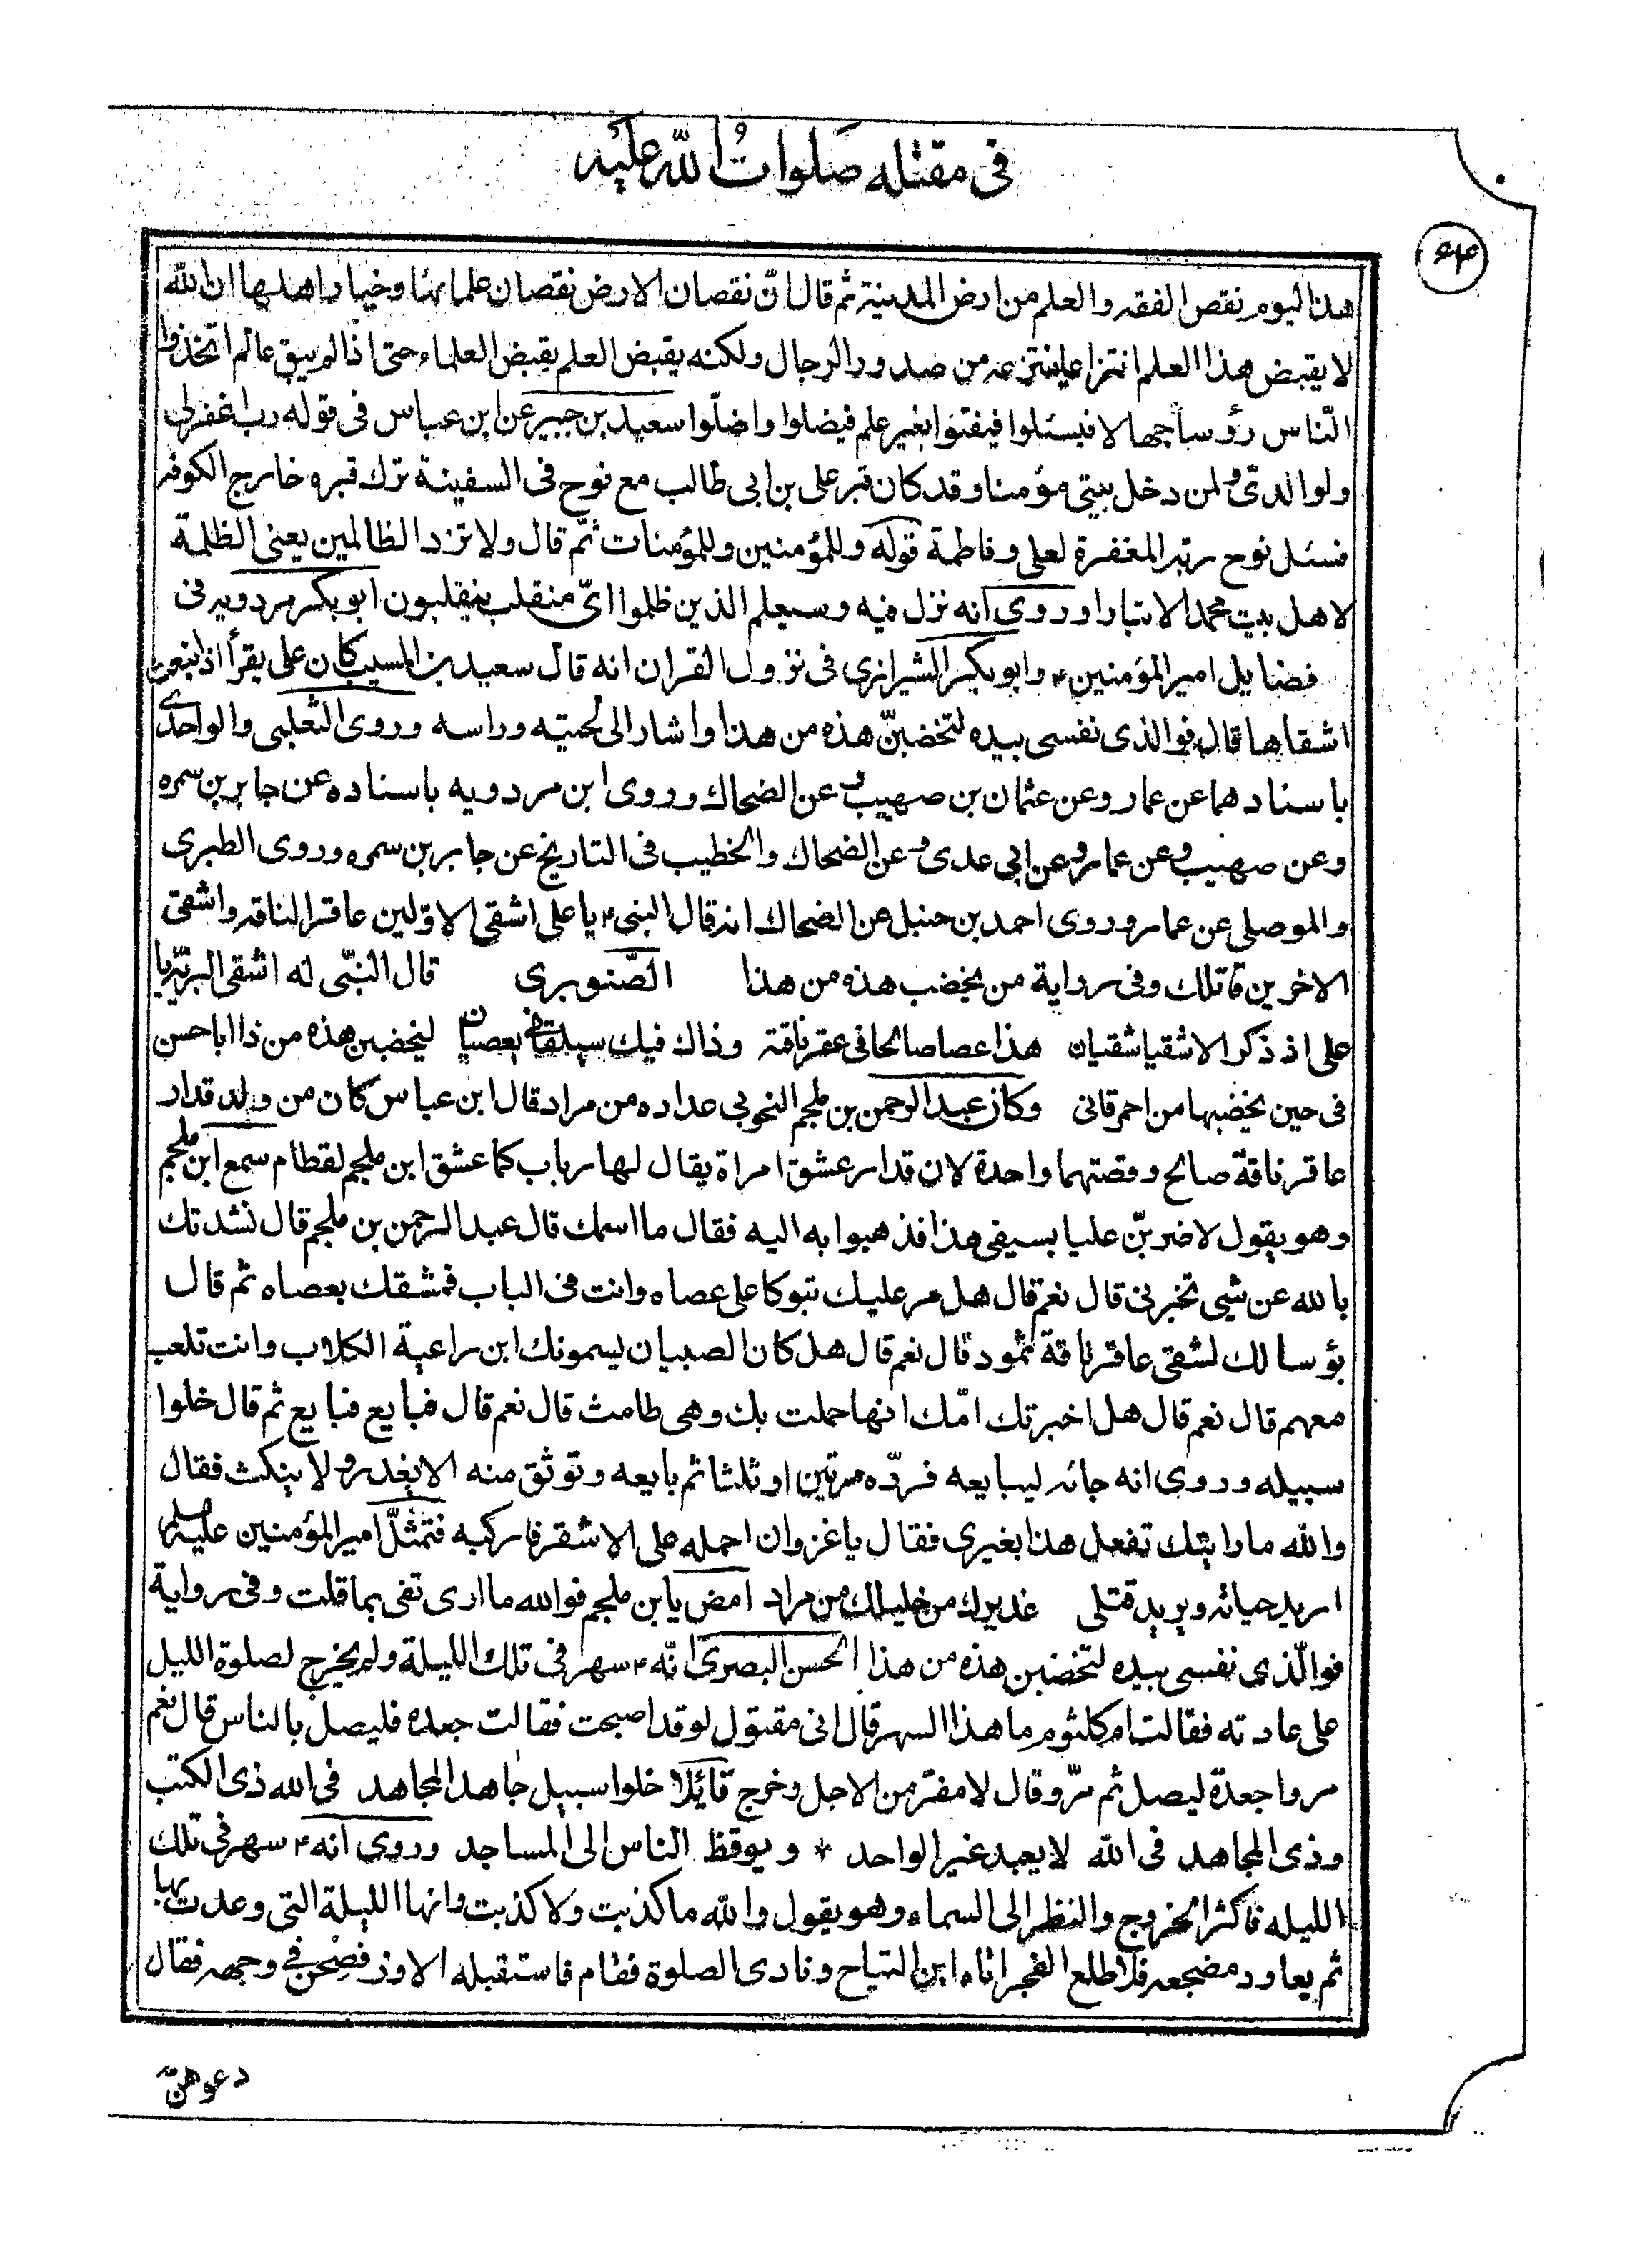 فى مقتله صَلواتُ اللّه عليْه
۶۴
هذا اليوم نقص الفقه والعلم من ارض المدينة ثم قال انّ نقصان الارض نقصان علمائها وخيار اهلها ان اللّه
لا يقبض هذا العلم انتزاعا ينتزعه من صدور الرجال ولكنه يقبض العلم بقبض العلماء حتى اذا لم يبق عالم اتخذوا
النّاس رؤسا جهالا فيسئلوا فيفتوا بغير علم فيضلوا واضلّوا سعيد بن جبير عن ابن عباس فى قوله رب اغفر لى
ولوالدىّ ولمن دخل بيتى مؤمنا وقد كان قبر على بن ابى طالب مع نوح فى السفينة ترك قبره خارج الكوفه
فسئل نوح ربه المغفرة لعلى وفاطمة قوله وللمؤمنين وللمؤمنات ثمّ قال ولا تزد الظالمين يعنى الظلمة
لاهل بيت محمد الا تبارا وروى انه نزل فيه وسيعلم الذين ظلموا اىّ منقلب ينقلبون ابو بكر مردويه فى
فضايل امير المؤمنين ۴ وابو بكر الشيرازى فى نزول القران انه قال سعيد بن المسيب كان على يقرأ اذ انبعث
اشقاها قال فوالذى نفسى بيده لتخضبنّ هذه من هذا واشار الى لحيته وراسه وروى الثعلبى والواحدى
باسنادهما عن عمار وعن عثمان بن صهيب وعن الضحاك وروى ابن مردويه باسناده عن جابر بن سمره
وعن صهيب وعن عمار وعن ابى عدى وعن الضحاك والخطيب فى التاريخ عن جابر بن سمره وروى الطبرى
والموصلى عن عمار وروى احمد بن حنبل عن الضحاك انه قال النبى ۴ يا على اشقى الاوّلين عاقر الناقه واشقى
الاخرين قاتلك وفى رواية من يخضب هذه من هذا الصّنوبرى قال النّبى له اشقى البريّة يا
على اذ ذكر الاشقيا شقيان هذا عصا صالحا فى عقر ناقته وذاك فيك سيلقانى بعصيان ليخضبن هذه من ذا ابا حسن
فى حين يخضبها من احمر قانى وكان عبد الرحمن بن ملجم النحوبى عداره من مراد قال ابن عباس كان من ولد قدار
عاقر ناقة صالح وقصتهما واحدة لان قدار عشق امراة يقال لها رباب كما عشق ابن ملجم لقطام سمع ابن ملجم
وهو يقول لاضربنّ عليا بسيفى هذا فذهبوا به اليه فقال ما اسمك قال عبد الرحمن بن ملجم قال نشدتك
بالله عن شى تخبرنى قال نعم قال هل مر عليك تبوكا على عصاه وانت فى الباب فمشقك بعصاه ثم قال
بؤسا لك لشقى عاقر ناقة ثمود قال نعم قال هل كان الصبيان يسمونك ابن راعية الكلاب وانت تلعب
معهم قال نعم قال هل اخبرتك امّك انها حملت بك وهى طامث قال نعم قال فبايع فبايع ثم قال خلوا
سبيله وروى انه جائه ليبايعه فردّه مرتين او ثلثا ثم بايعه وتوثق منه الا يغدر ولا ينكث فقال
والله ما رايتك تفعل هذا بغيرى فقال يا غزوان احمله على الاشقر فاركبه فتمثلّ امير المؤمنين عليه السلم
اريد حياته ويريد قتلى غديرك من خليلك من مراد امض يا بن ملجم فوالله ما ارى تفى بما قلت وفى رواية
فوالّذى نفسى بيده لتخضبن هذه من هذا الحسن البصرى انّه ۴ سهر فى تلك الليلة ولم يخرج لصلوة الليل
على عادته فقالت ام كلثوم ما هذا السهر قال انى مقتول لو قد اصبحت فقالت جعده فليصل بالناس قال نعم
مروا جعدة ليصل ثم مرّ وقال لا مفرّ من الاجل وخرج قائلا خلوا سبيل جاهد المجاهد فى الله ذى الكتب
وذى المجاهد فى اللّه لا يعبد غير الواحد * ويوقظ الناس الى المساجد وروى انه ۴ سهر فى تلك
الليله فاكثر الخروج والنظر الى السماء وهو يقول واللّه ما كذبت ولا كذبت وانها الليلة التى وعدت بها
ثم يعاود مضجعه فلما طلع الفجر اتاه ابن التياح ونادى الصلوة فقام فاستقبله الاوز فصحن فى وجهه فقال
دعوهنّ